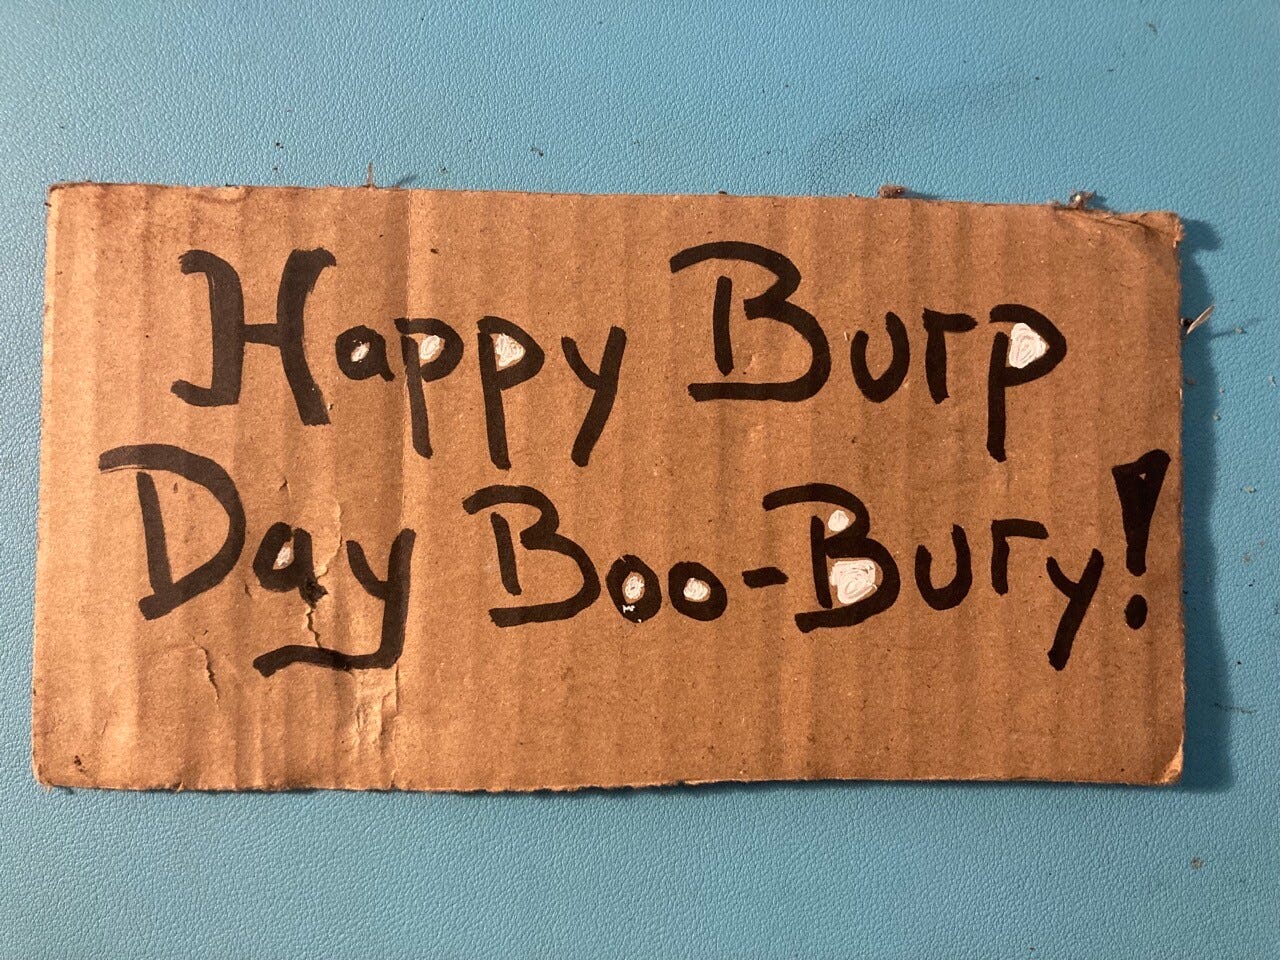 Happy Burp
Day Boo-Bury!